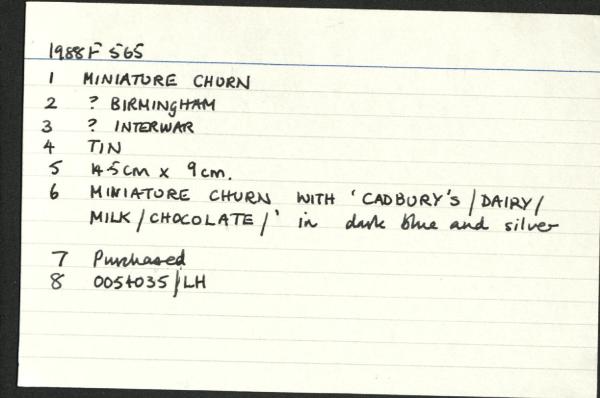 1988F 565
1 MINIATURE CHURN
2 ? BIRMINGHAM
3 ? INTERWAR
4 TIN
5 14.5cm x 9cm.
6 MINIATURE CHURN WITH 'CADBURY'S/DAIRY/
MILK/CHOCOLATE/' in dark blue and silver
7 Purchased
8 0054035/LH